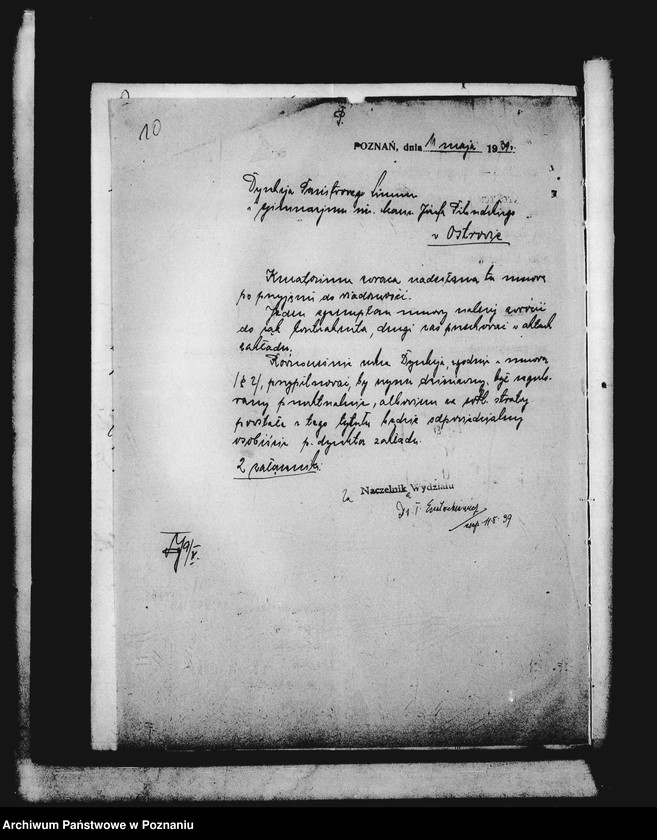 10
POZNAŃ, dnia 11 maja 1939.
Dyrekcja Państwowego Liceum
i gimnazjum im. Marsz. Józefa Piłsudskiego
w Ostrowie
Kuratorium zwraca nadesłaną tu umowę
po przyjęciu do wiadomości.
Jeden egzemplarz umowy należy zwrócić
do rąk kontrahenta, drugi zaś przechować w aktach
zakładu.
Równocześnie Dyrekcja, zgodnie z umową
/§ 2/, przypilnować, by czynsz dzierżawny był regulo-
wany punktualnie, albowiem za straty
powstałe z tego tytułu będzie odpowiedzialny
osobiście p. dyrektor zakładu.
2 załączniki.
za Naczelnik Wydziału
Dr. T. 
11.5.39
Archiwum Państwowe w Poznaniu